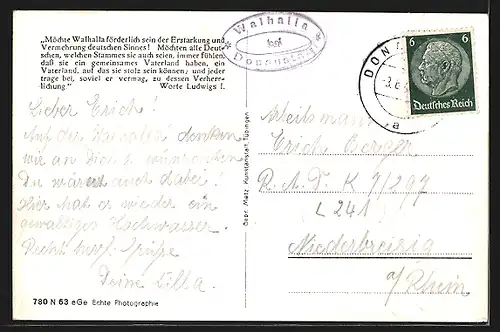 „Möchte Walhalla förderlich sein der Erstarkung und
Vermehrung deutschen Sinnes! Möchten alle Deut-
schen, welchen Stammes sie auch seien, immer fühlen,
daß sie ein gemeinsames Vaterland haben, ein
Vaterland, auf das sie stolz sein können; und jeder
trage bei, soviel er vermag, zu dessen Verherr-
lichung.“ Worte Ludwigs I.
Walhalla
Donaustauf
DON
a
6 6
Deutsches Reich
Lieber Erich!
Auf der Walhalla denken
wir an Dich u. wünschten
Du wärest auch dabei!
Hier hat es wieder ein
gewaltiges Hochwasser.
Recht herzl. Grüße
Deine Lilla.
Arbeitsmann
Erich Berger
R.A.D. K 7/297
L 241
Niederbreisig
a/Rhein
Gebr. Metz, Kunstanstalt, Tübingen
780 N 63 eGe Echte Photographie